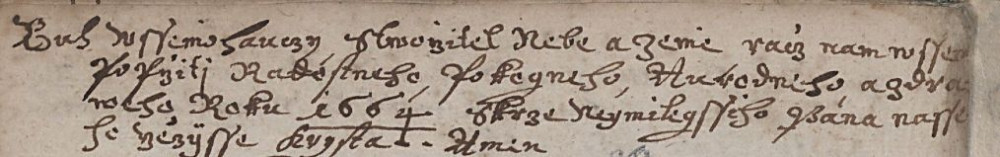 Buh wssemohauczy Stworzitel Nebe a zeme racz nam wssem
Popržiti Radostneho, Pokogneho, Aurodneho, a zdra
weho Roku 1664 Skrze Neymilegssiho Pána nasse
ho Gežysse Krysta. Amen